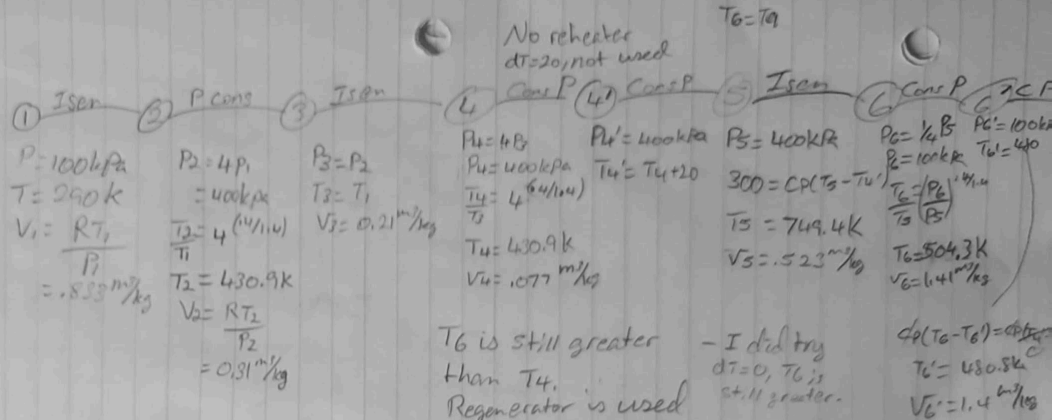 T6=T9
No reheater
dT=20, not used
① Isen ② P cons ③ Isen ④ Cons P ④' Cons P ⑤ Isen ⑥ Cons P
P=100kPa
T=290K
V1= RT1
P1
=.833 m³/kg
P2=4P1
=400kPa
T2/T1=4^(.4/1.4)
T2=430.9K
V2= RT2
P2
=0.31 m³/kg
P3=P2
T3=T1
V3=0.21 m³/kg
P4=400kPa
T4/T3=4^(.4/1.4)
T4=430.9K
V4=.077 m³/kg
P4'=400kPa
T4'=T4+20
P5=400kPa
300=CP(T5-T4')
T5=749.4K
V5=.523 m³/kg
P6=1/4 P5
P6=100kPa
T6/T5=(P6/P5)^.4/1.4
T6=504.3K
V6=1.41 m³/kg
P6'=100kPa
T6 is still greater
than T4.
Regenerator is used
- I did try
dT=0, T6 is
still greater.
T6'=480.8K
V6'=1.4 m³/kg